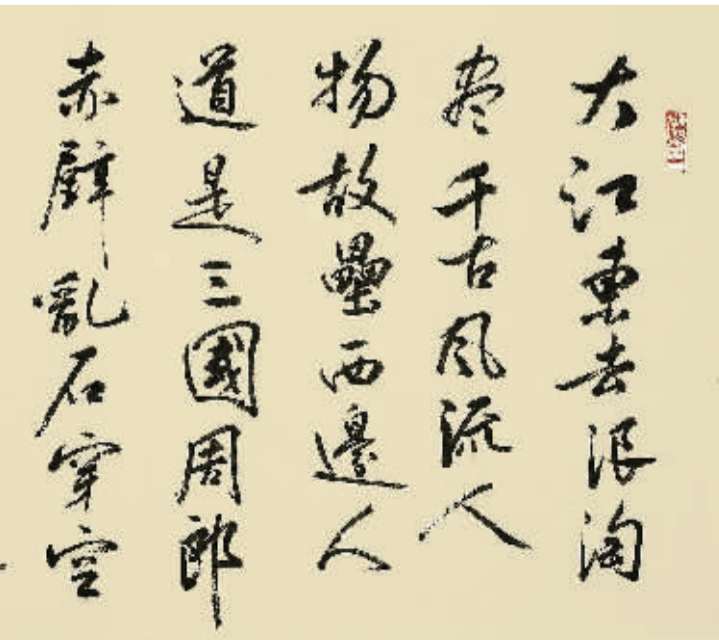 大江東去浪淘
盡千古風流人
物故壘西邊人
道是三國周郎
赤壁亂石穿空